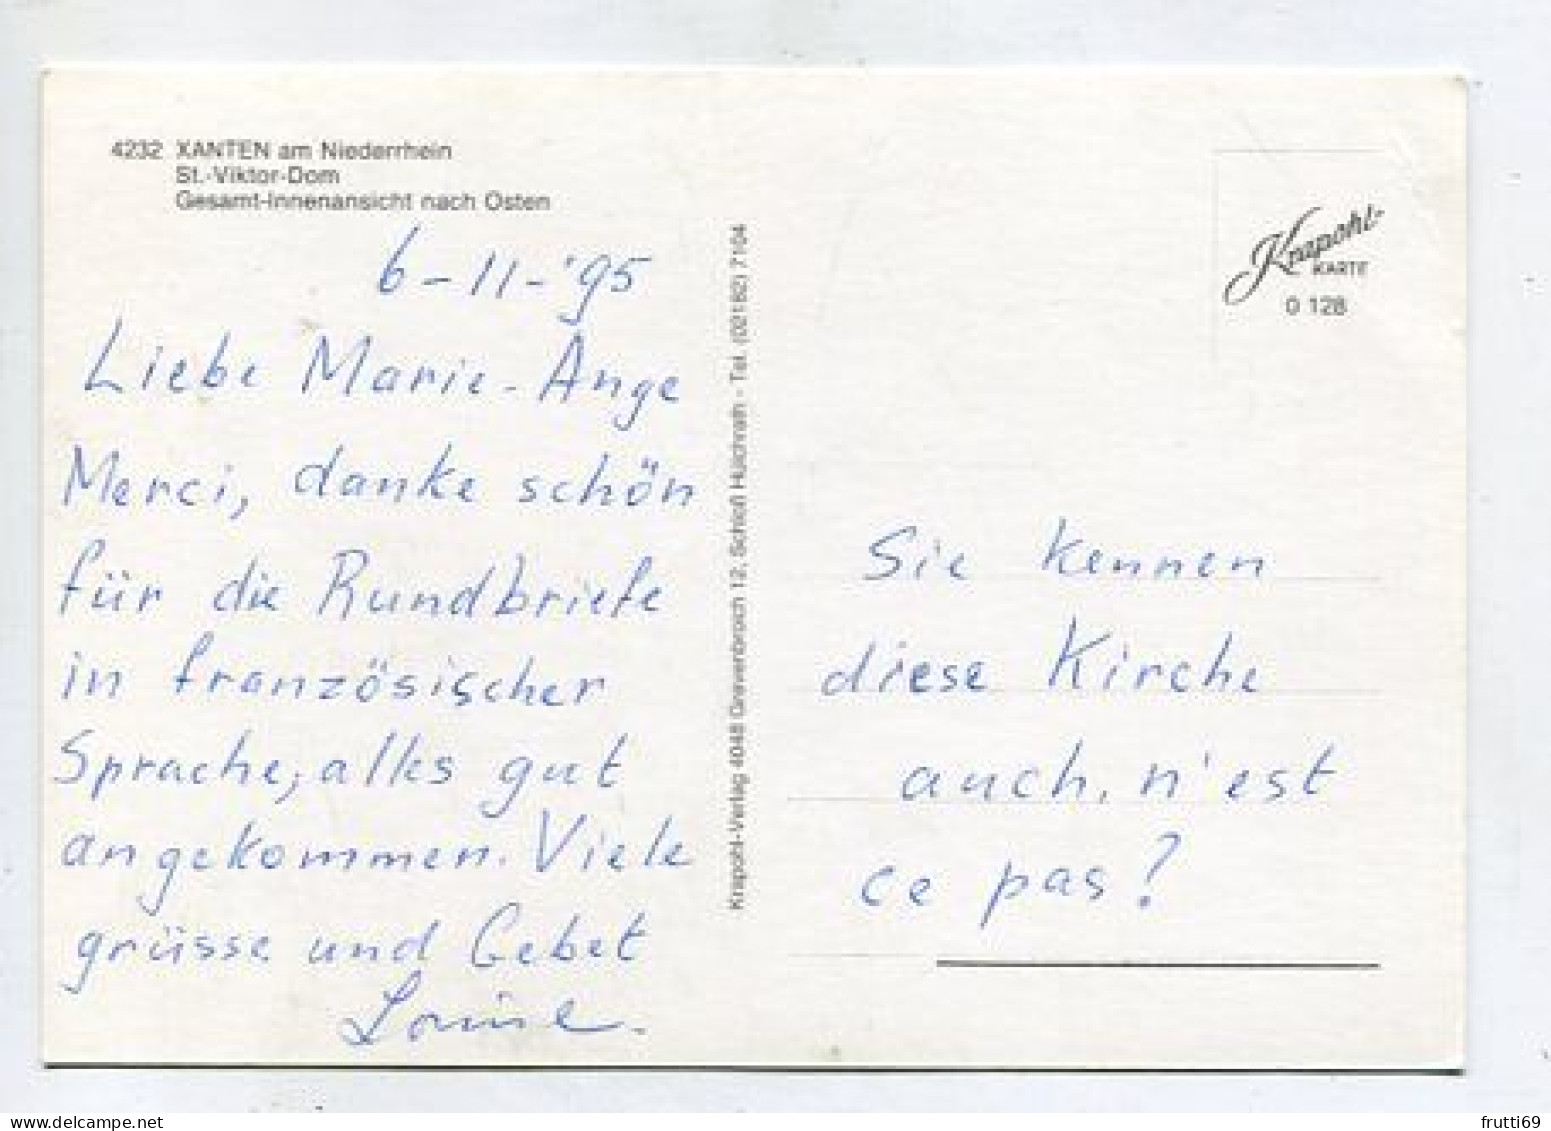 4232 XANTEN am Niederrhein
St.-Viktor-Dom
Gesamt-Innenansicht nach Osten
6-11-'95
Liebe Marie-Ange
Merci, danke schön
für die Rundbriefe
in französischer
Sprache, alles gut
angekommen. Viele
grüsse und Gebet
Krapohl-Verlag 4048 Grevenbroich 12, Schloß Hülchrath - Tel. (02182) 7104
Krapohl-
KARTE
0 128
Sie kennen
diese Kirche
auch, n'est
ce pas?
frutti69